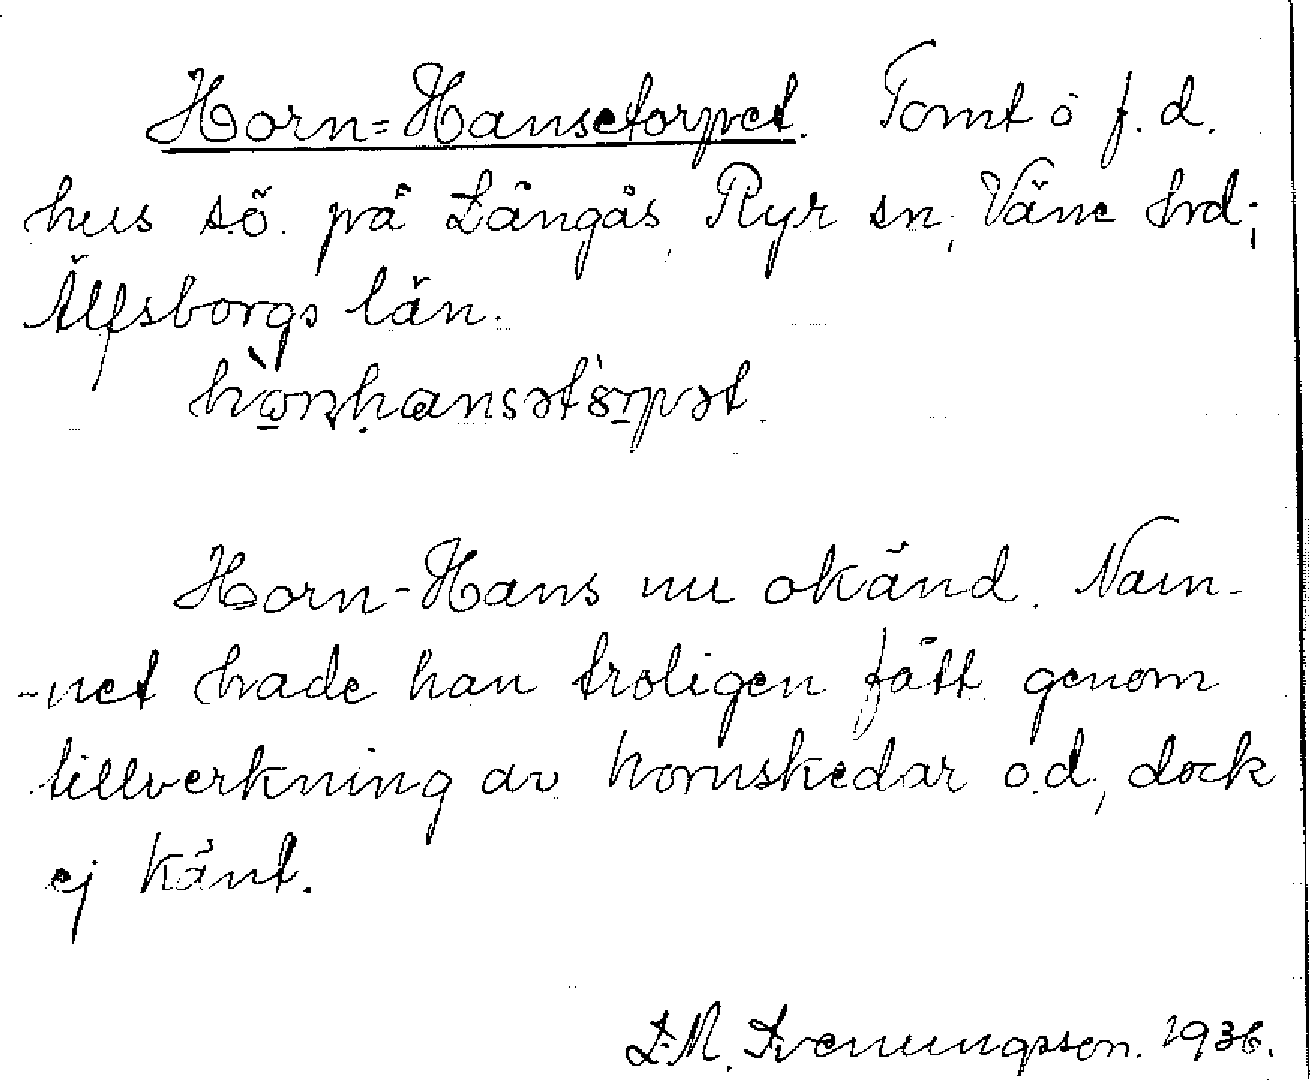 Horn-Hansetorpet. Tomt o f.d.
hus sö. på Långås, Ryr sn, Väne hrd;
Älfsborgs län.
Horn-Hans nu okänd. Nam-
-net hade han troligen fått genom
tillverkning av hornskedar o.d., dock
ej känt.
L.M. Svenungsson. 1936.